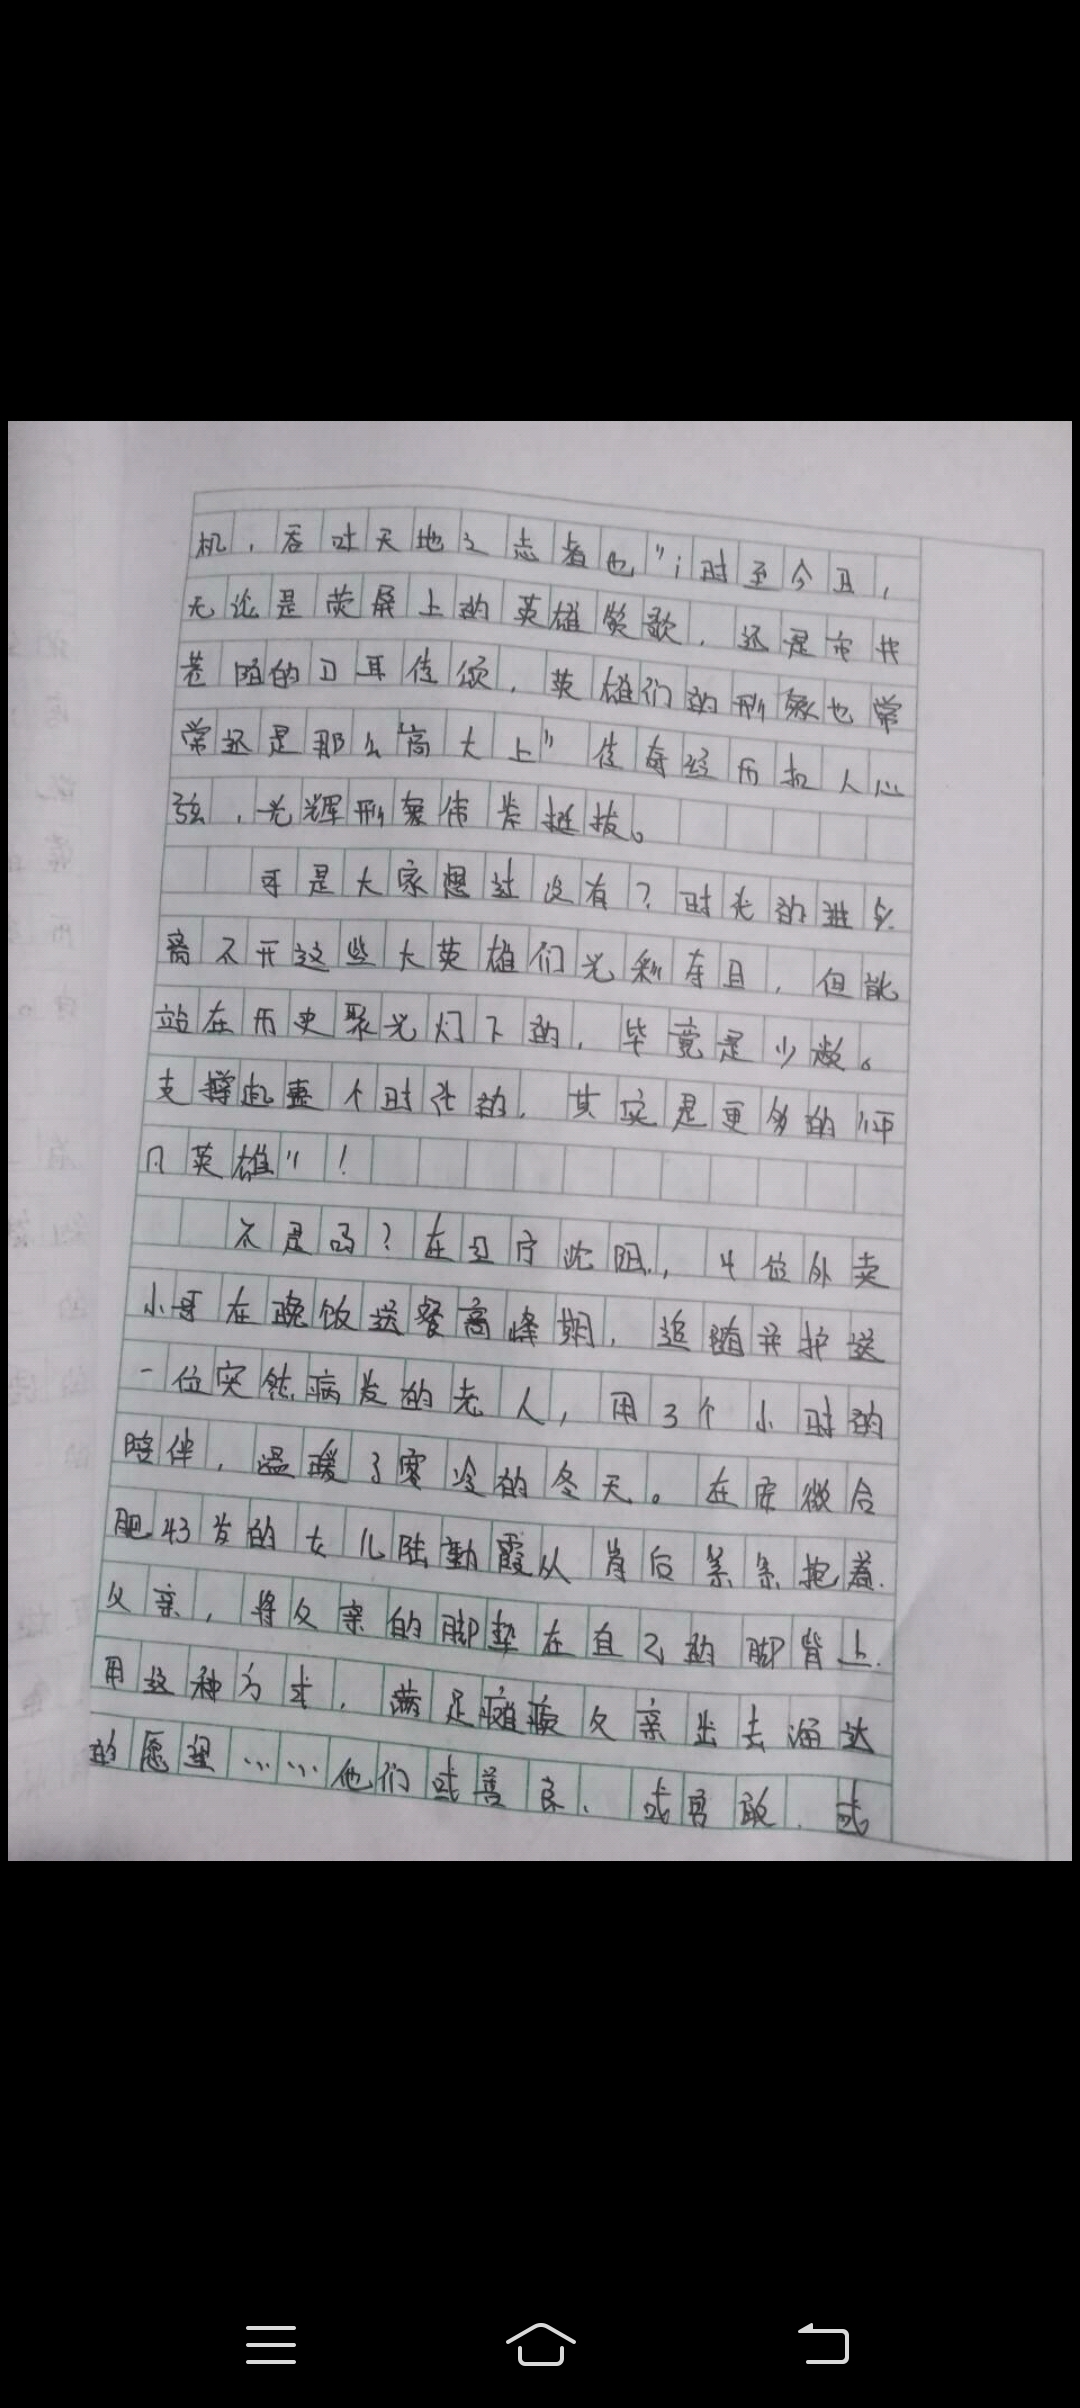 机，吞吐天地之志者也”；时至今日，
无论是荧屏上的英雄赞歌，还是市井
巷陌的口耳传颂，英雄们的形象也常
常还是那么“高大上”传奇经历扣人心
弦，光辉形象伟岸挺拔。
可是大家想过没有？时光的进步
离不开这些大英雄们光彩夺目，但能
站在历史聚光灯下的，毕竟是少数。
支撑起整个时代的，其实是更多的“平
凡英雄”！
不是吗？在辽宁沈阳，4位外卖
小哥在晚饭送餐高峰期，追随并护送
一位突然病发的老人，用3个小时的
陪伴，温暖了寒冷的冬天。在安徽合
肥43岁的女儿陆勤霞从背后紧紧抱着
父亲，将父亲的脚垫在自己的脚背上
用这种方式，满足瘫痪父亲出去溜达
的愿望……他们或善良、或勇敢、或